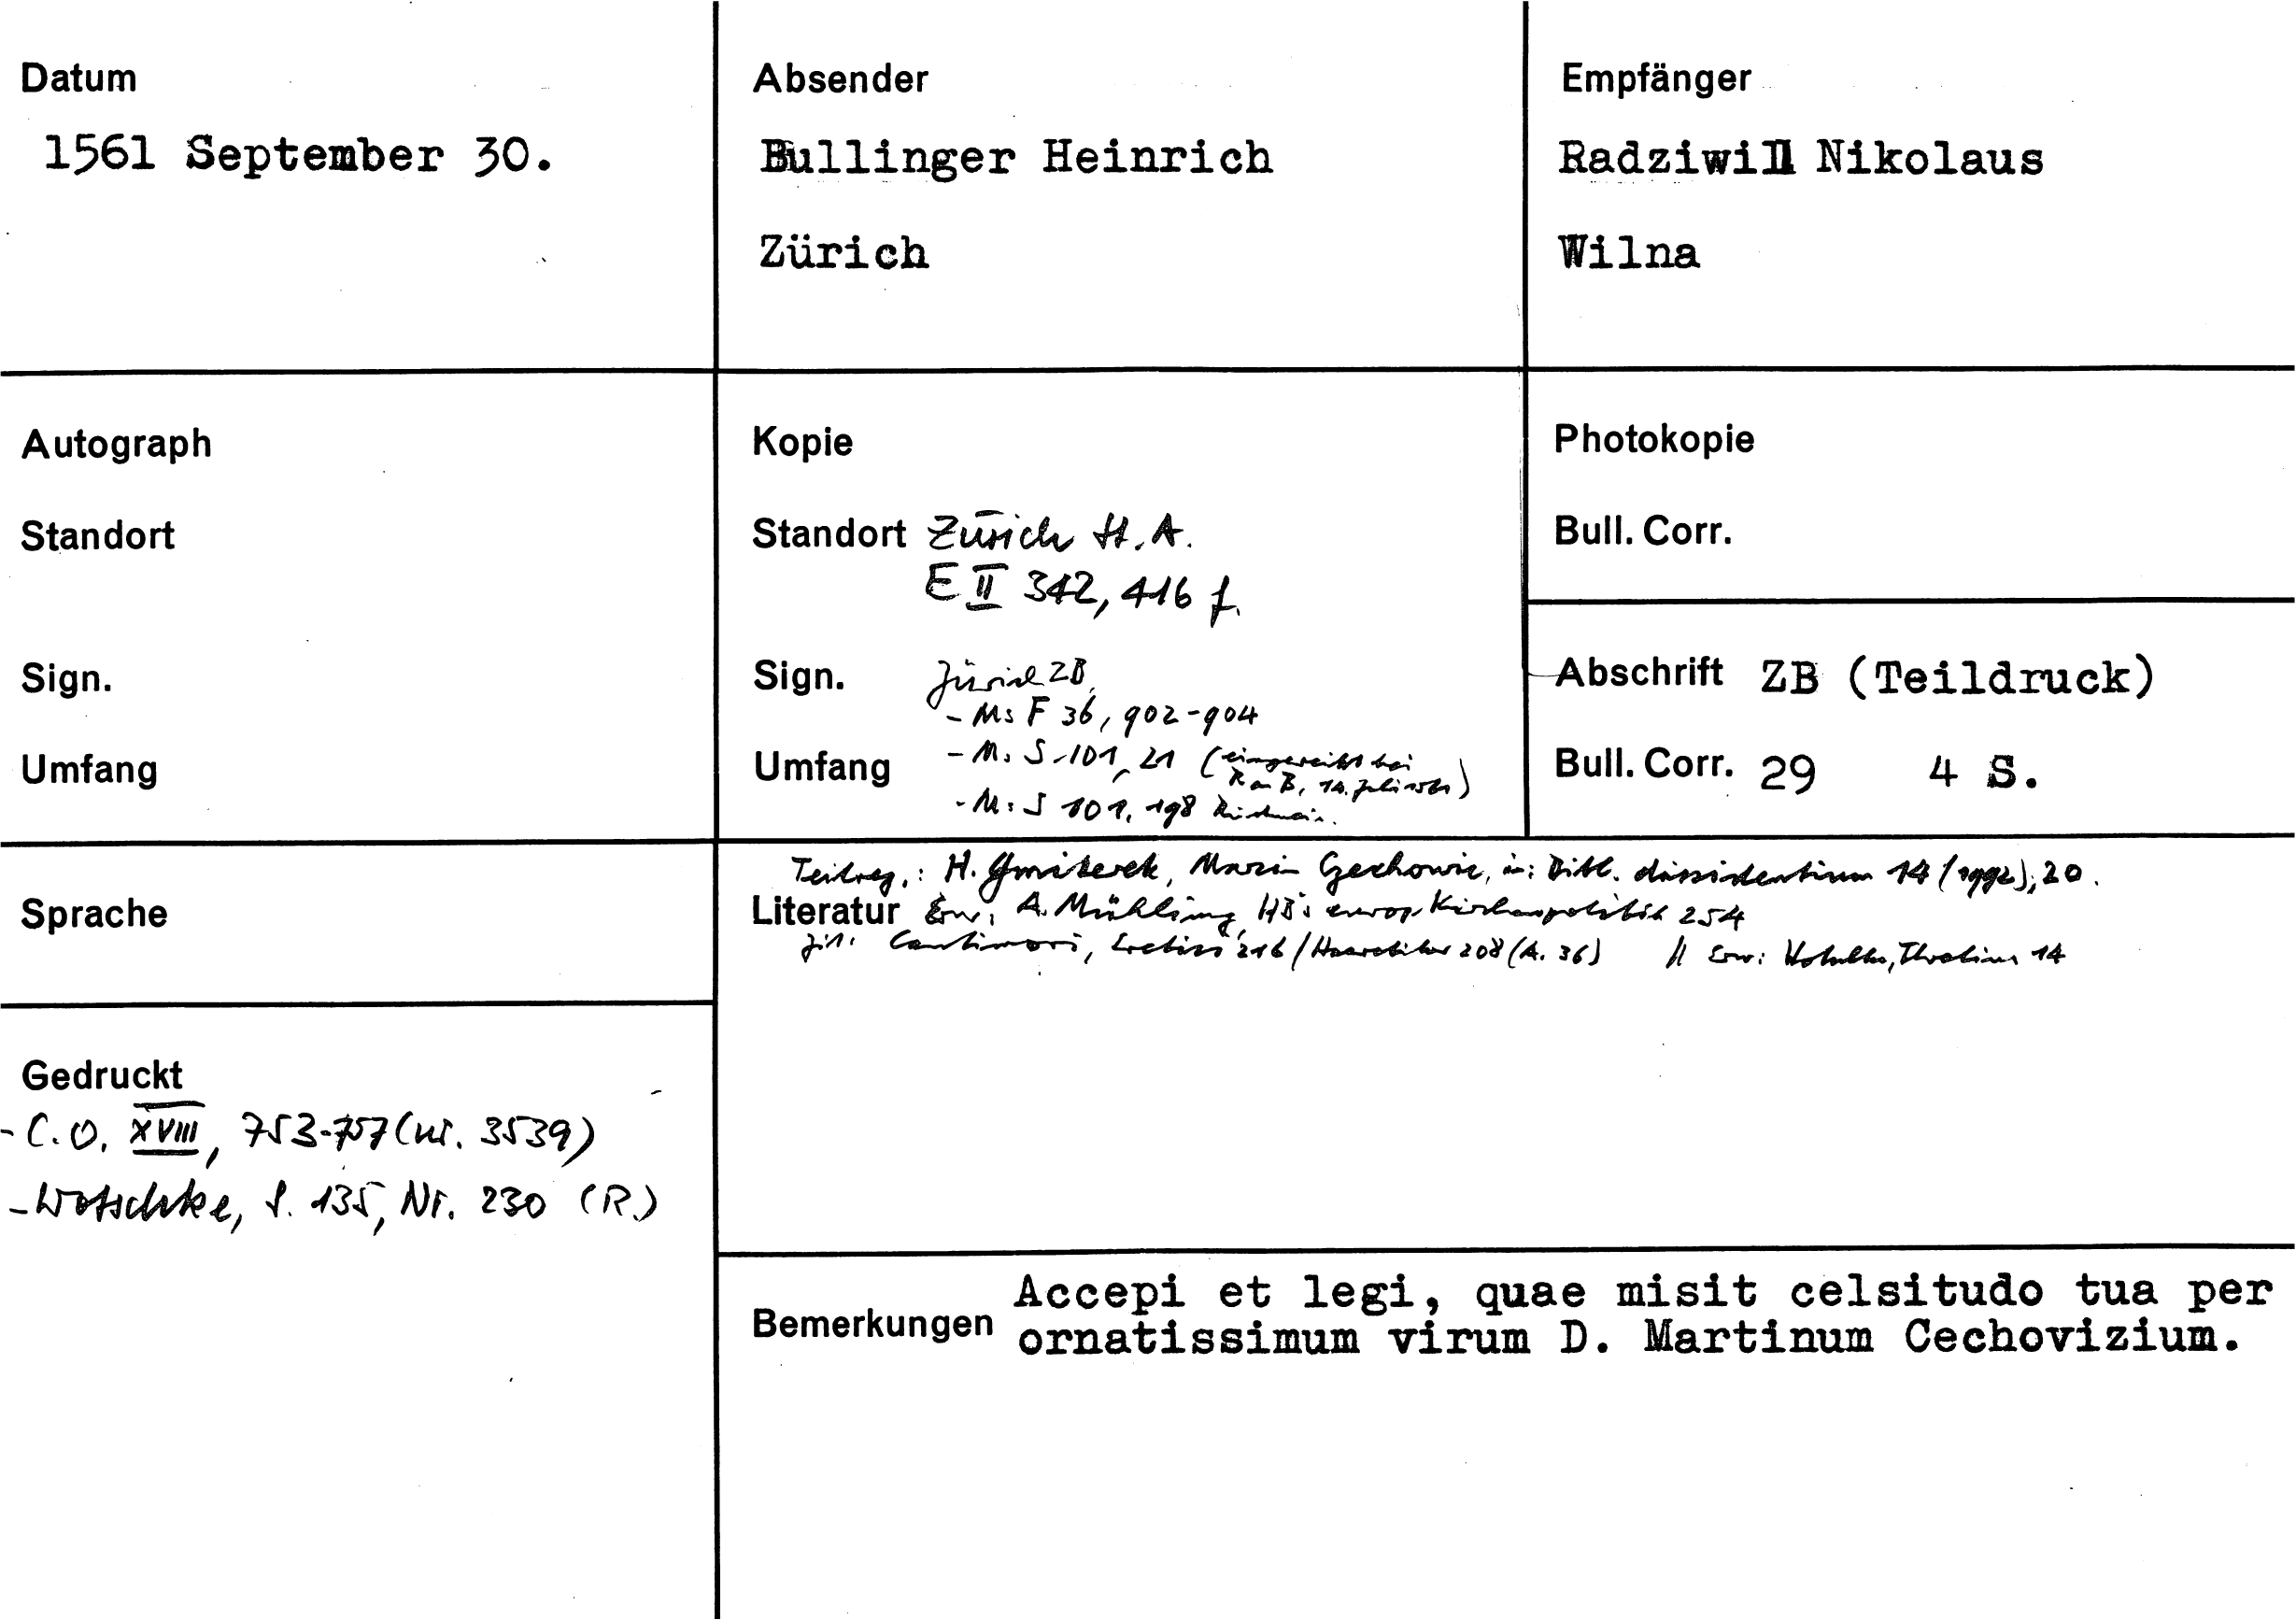 Datum
1561 September 30.
Absender
Bullinger Heinrich
Zürich
Empfänger
Radziwill Nikolaus
Wilna
Autograph
Standort
Sign.
Umfang
Kopie
Standort Zürich St.A.
E II 342, 416 f.
Sign. Zürich ZB,
- Ms F 36, 902-904
Umfang - Ms S 101, 21 (eingereiht bei
R an B, 14. Juli
- Ms S 101, 198
Photokopie
Bull. Corr.
Abschrift ZB (Teildruck)
Bull. Corr. 29 4 S.
Sprache
Teilreg.: H. Gmiterek, Marcin Czechowic, in: Bibl. dissidentium 14 (1992), 20.
Literatur Erw: A. Mühling, HB's europ. Kirchenpolitik 254
Zit: Cantimori, Eretici 216 / Haeretiker 208 (A. 36) // Erw: 14
Gedruckt
- C.O. XVIII, 753-757 (nr. 3539)
- Wotschke, S. 135, Nr. 230 (R)
Bemerkungen
Accepi et legi, quae misit celsitudo tua per
ornatissimum virum D. Martinum Cechovizium.